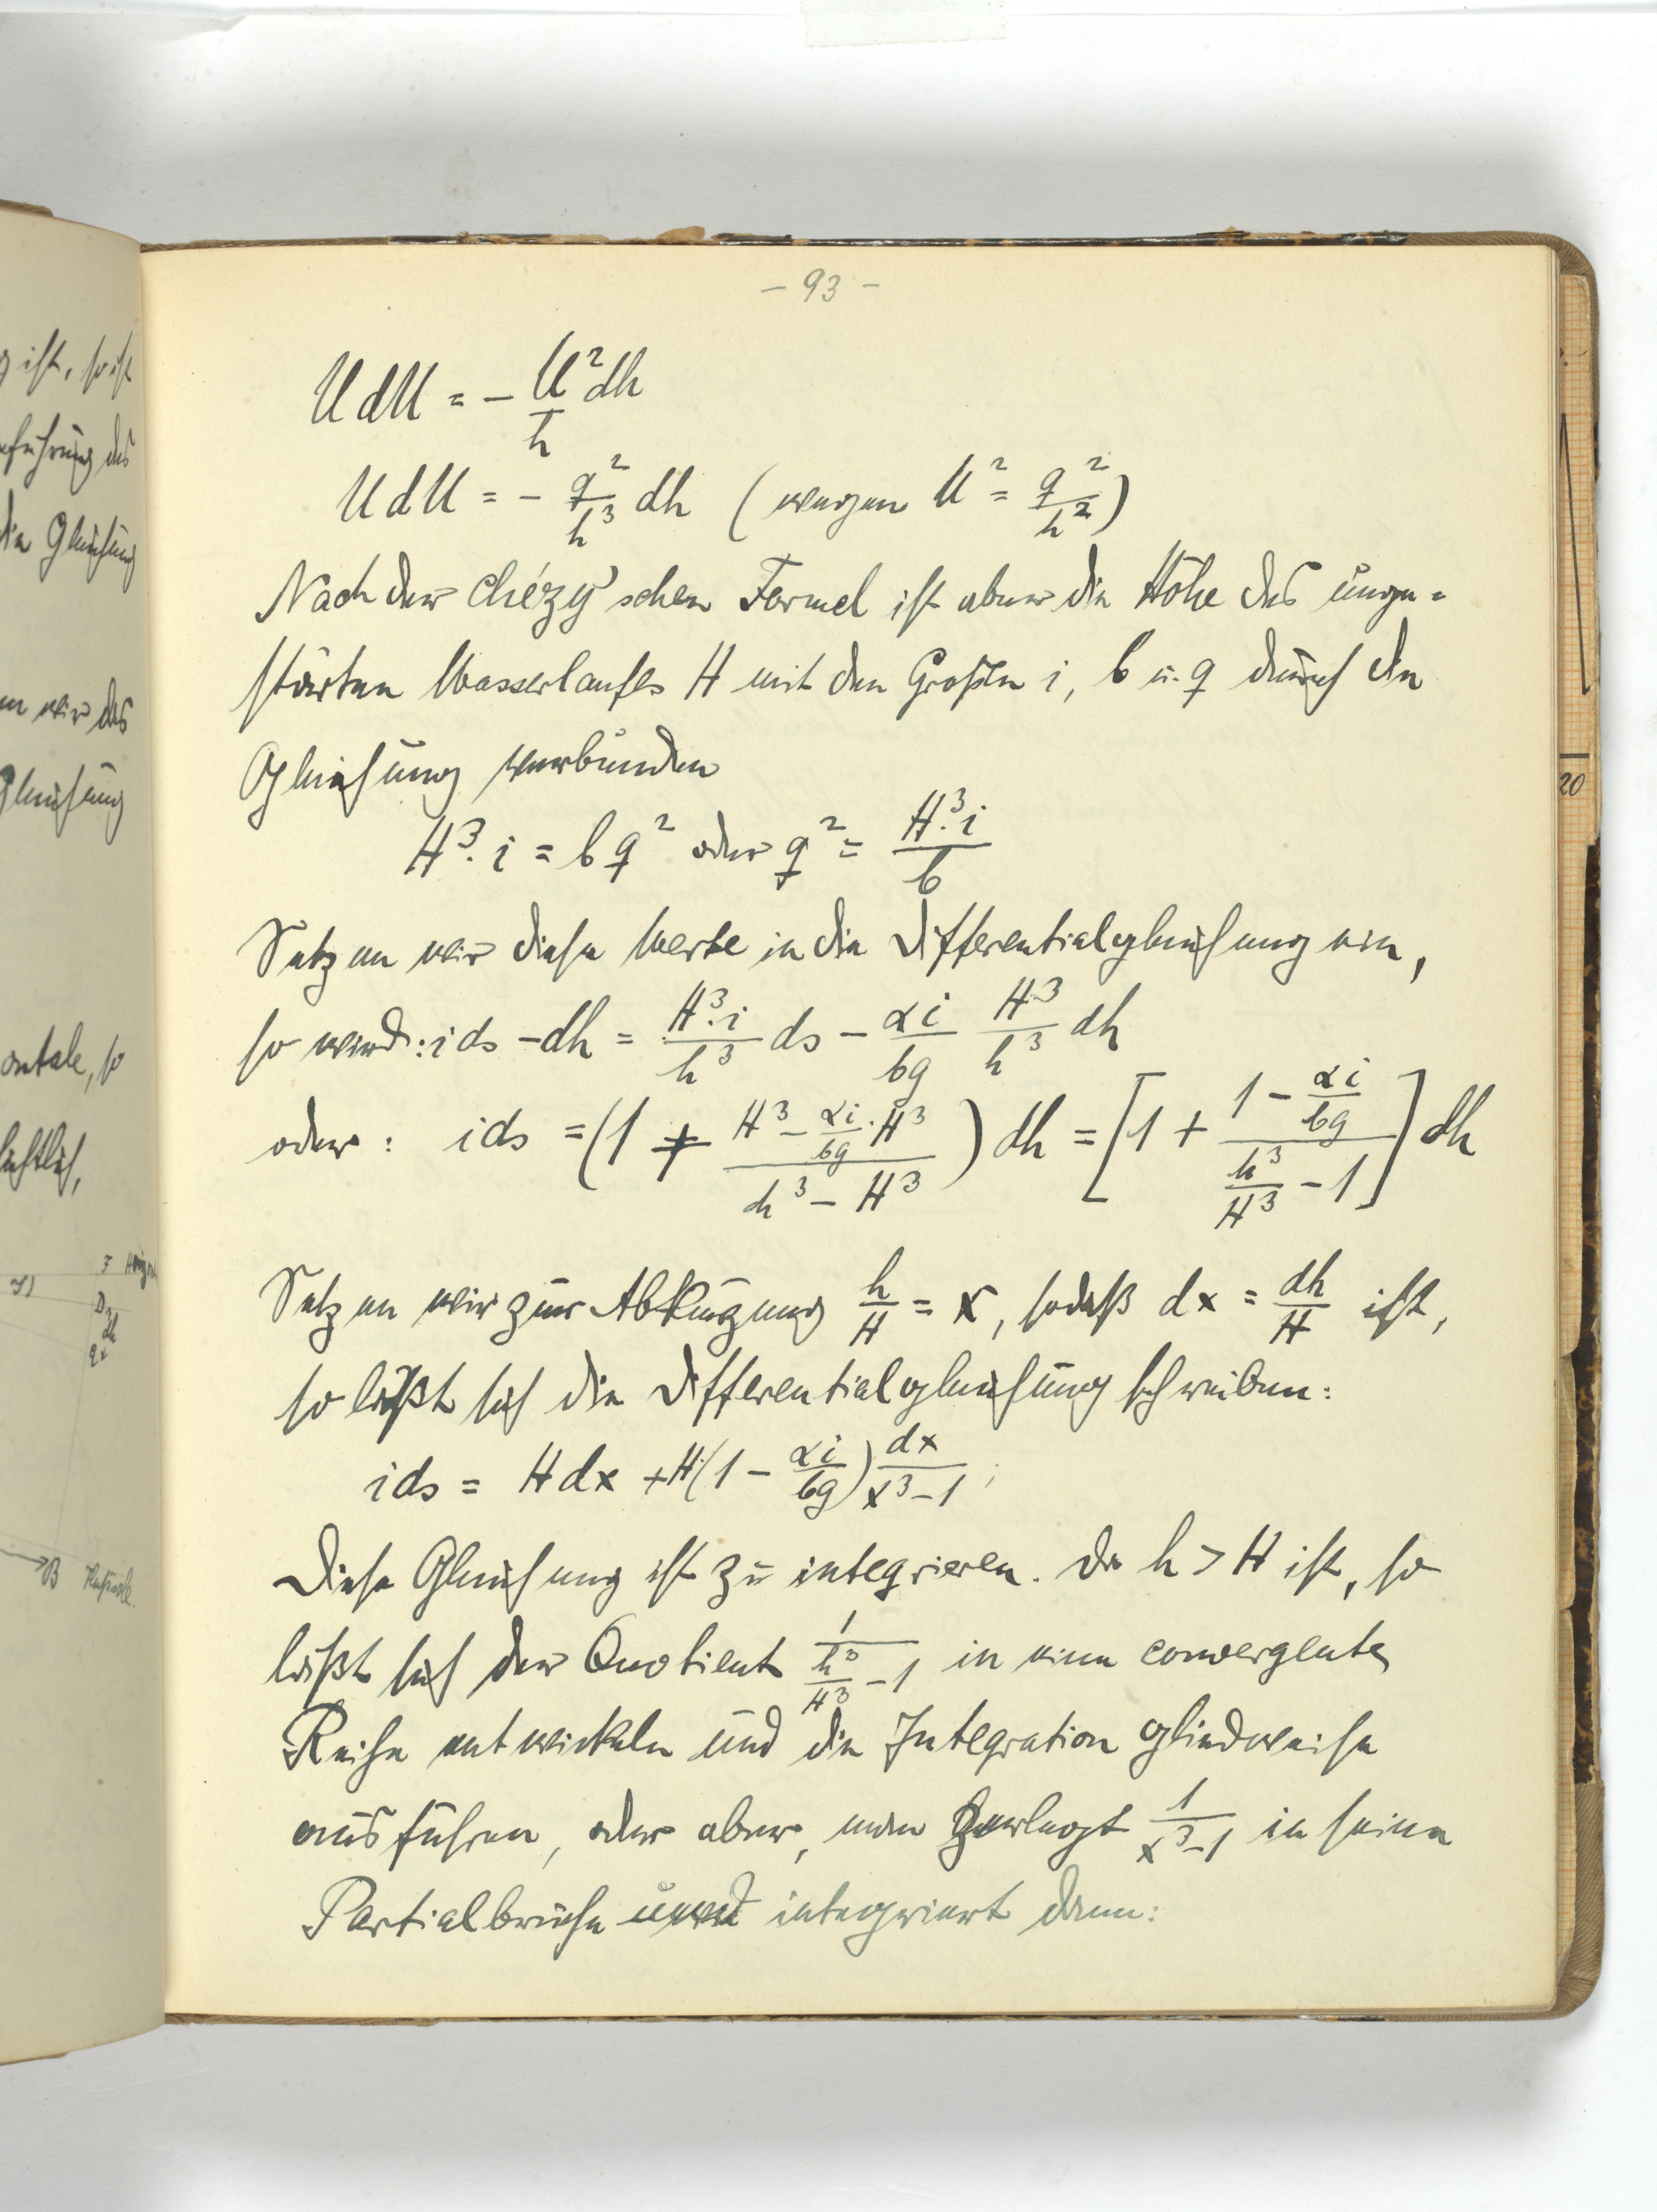 - 93 -
U dU = - U² dh / h
U dU = - q²/h³ dh (wegen U² = q²/h²)
Nach der Chézy'schen Formel ist aber die Höhe des unge=
störten Wasserlaufes H mit den Größen i, b u. q durch die
Gleichung verbunden
H³· i = b q² oder q² = H³· i / b
Setzen wir diese Werte in die Differentialgleichung ein,
so wird: i ds - dh = H³· i / h³ ds - αi/bg H³/h³ dh
oder: i ds = (1 + (H³ - αi/bg · H³) / (h³ - H³)) dh = [1 + (1 - αi/bg) / (h³/H³ - 1)] dh
Setzen wir zur Abkürzung h/H = x, sodaß dx = dh/H ist,
so läßt sich die Differentialgleichung schreiben:
i ds = H dx + H (1 - αi/bg) dx / (x³ - 1)
Diese Gleichung ist zu integrieren. Da h > H ist, so
läßt sich der Quotient 1 / (h³/H³ - 1) in eine convergente
Reihe entwickeln und die Integration gliedweise
ausführen, oder aber, man zerlegt 1 / (x³ - 1) in seine
Partialbrüche und integriert dann:
ist, so ist
des
die Gleichung
wir das
Gleichung
so
F
D
dh
B
20